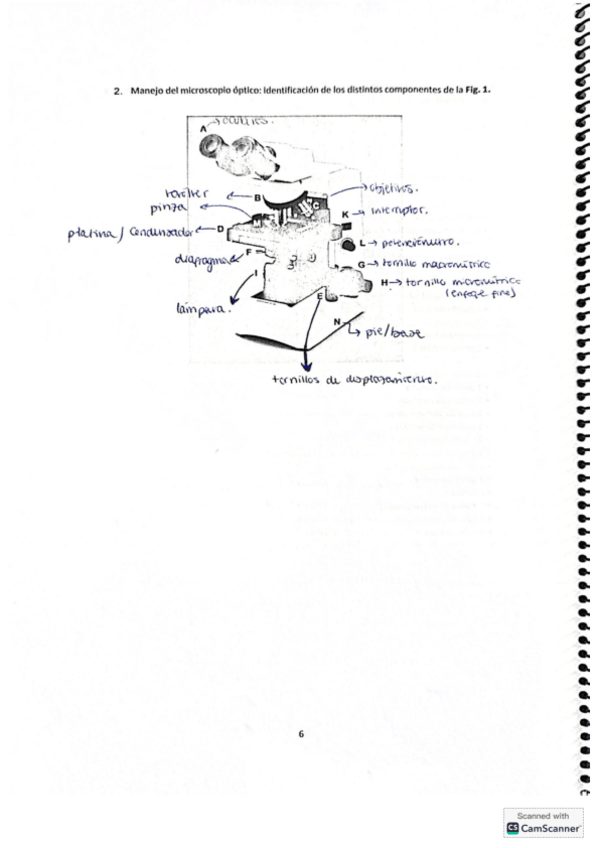 2. Manejo del microscopio óptico: Identificación de los distintos componentes de la Fig. 1.
A → oculares.
revolver ← B
→ objetivos.
C
pinza ← M
K → Interruptor.
platina / Condensador ← D
L → potenciómetro.
diafragma ← F
G → tornillo macrométrico
I
H → tornillo micrométrico
(enfoque fino)
E
lámpara.
N
↳ pie/base
tornillos de desplazamiento.
6
Scanned with
CS CamScanner